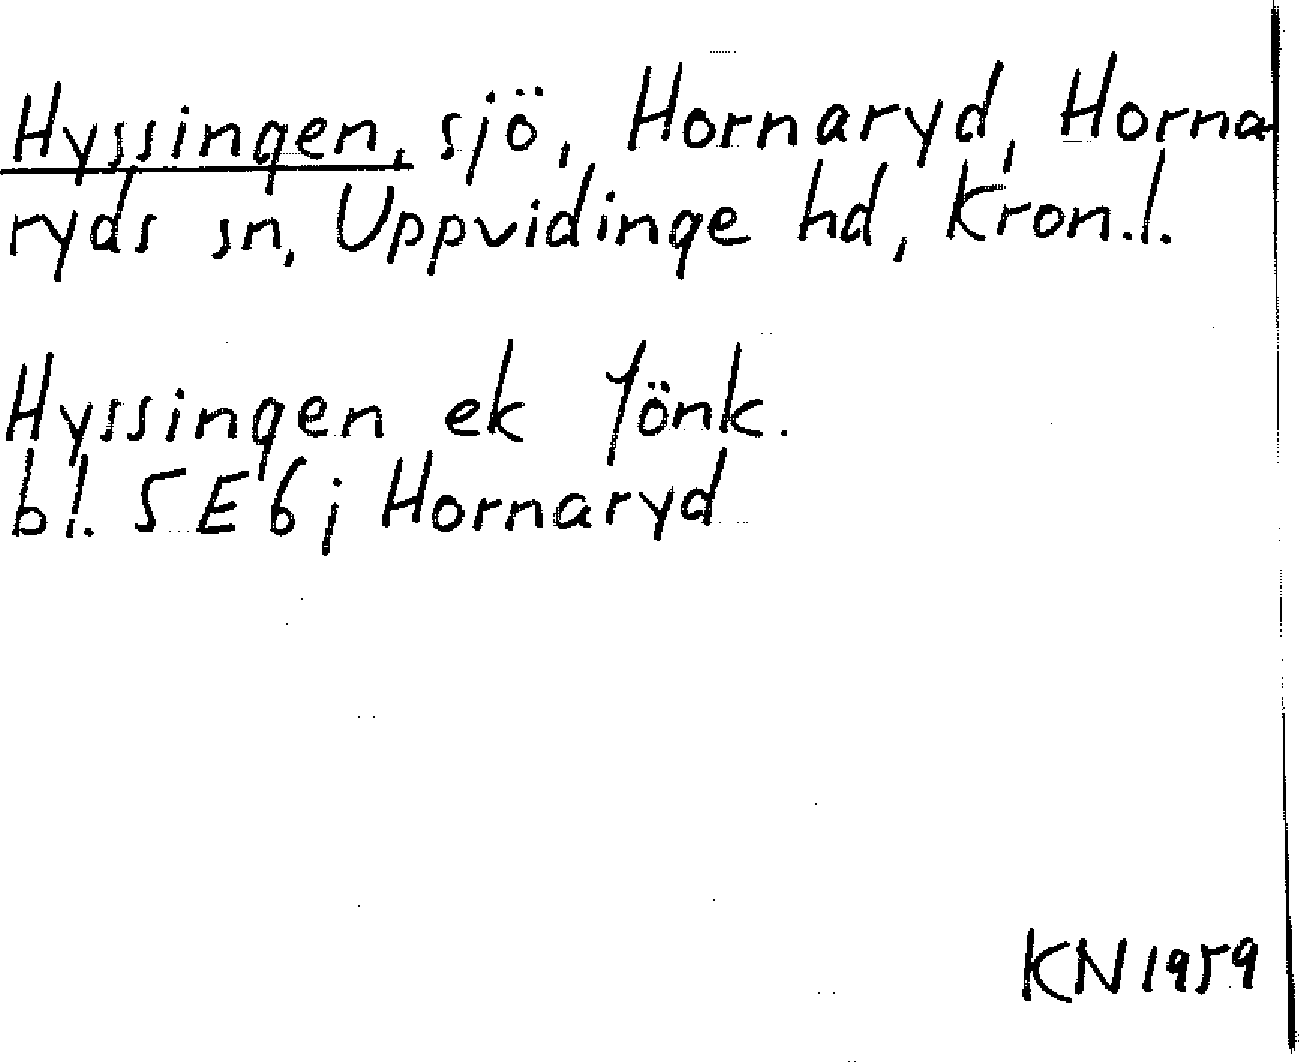 Hyssingen, sjö, Hornaryd, Horna
ryds sn, Uppvidinge hd, Kron.l.
Hyssingen ek Jönk.
bl. 5 E 6 j Hornaryd
KN 1959